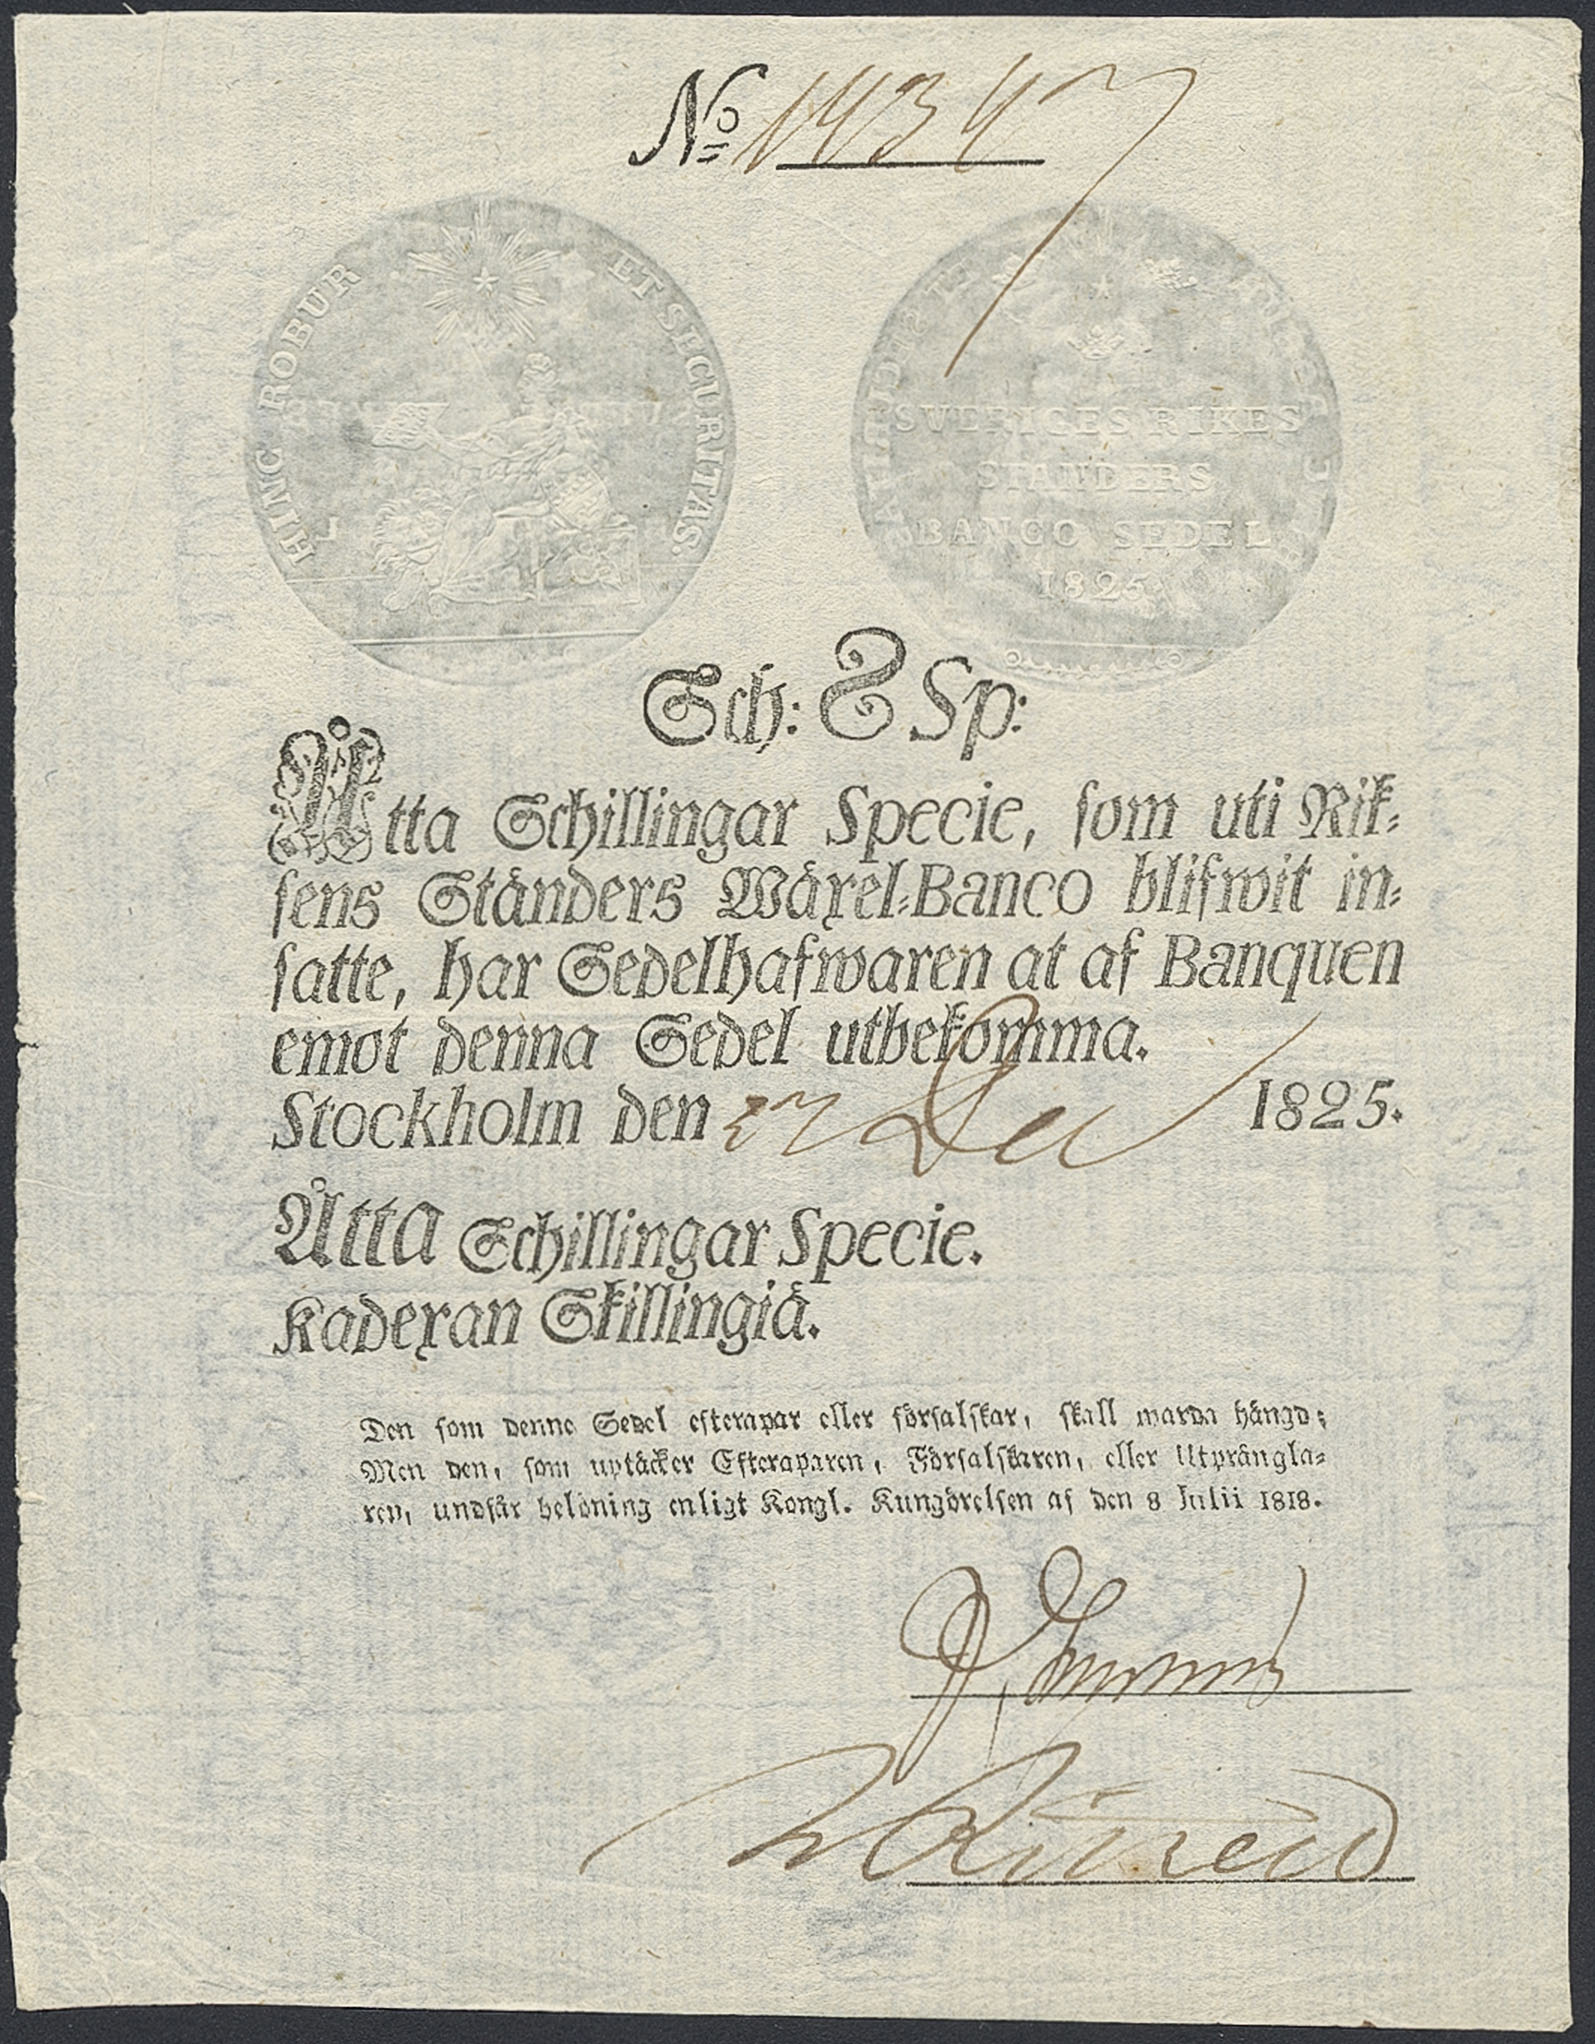 No 14347
HINC ROBUR ET SECURITAS.
SVERIGES RIKES
STÄNDERS
BANCO SEDEL
1825
Sch: 8 Sp:
Åtta Schillingar Specie, som uti Rik-
sens Ständers Wäxel-Banco blifwit in-
satte, har Sedelhafwaren at af Banquen
emot denna Sedel utbekomma.
Stockholm den 27 Dec 1825.
Åtta Schillingar Specie.
Kadexan Skillingiä.
Den som denne Sedel efterapar eller förfalskar, skall warda hängd;
Men den, som uptäcker Efteraparen, Förfalskaren, eller Utprängla-
ren, undfår belöning enligt Kongl. Kungörelsen af den 8 Julii 1818.